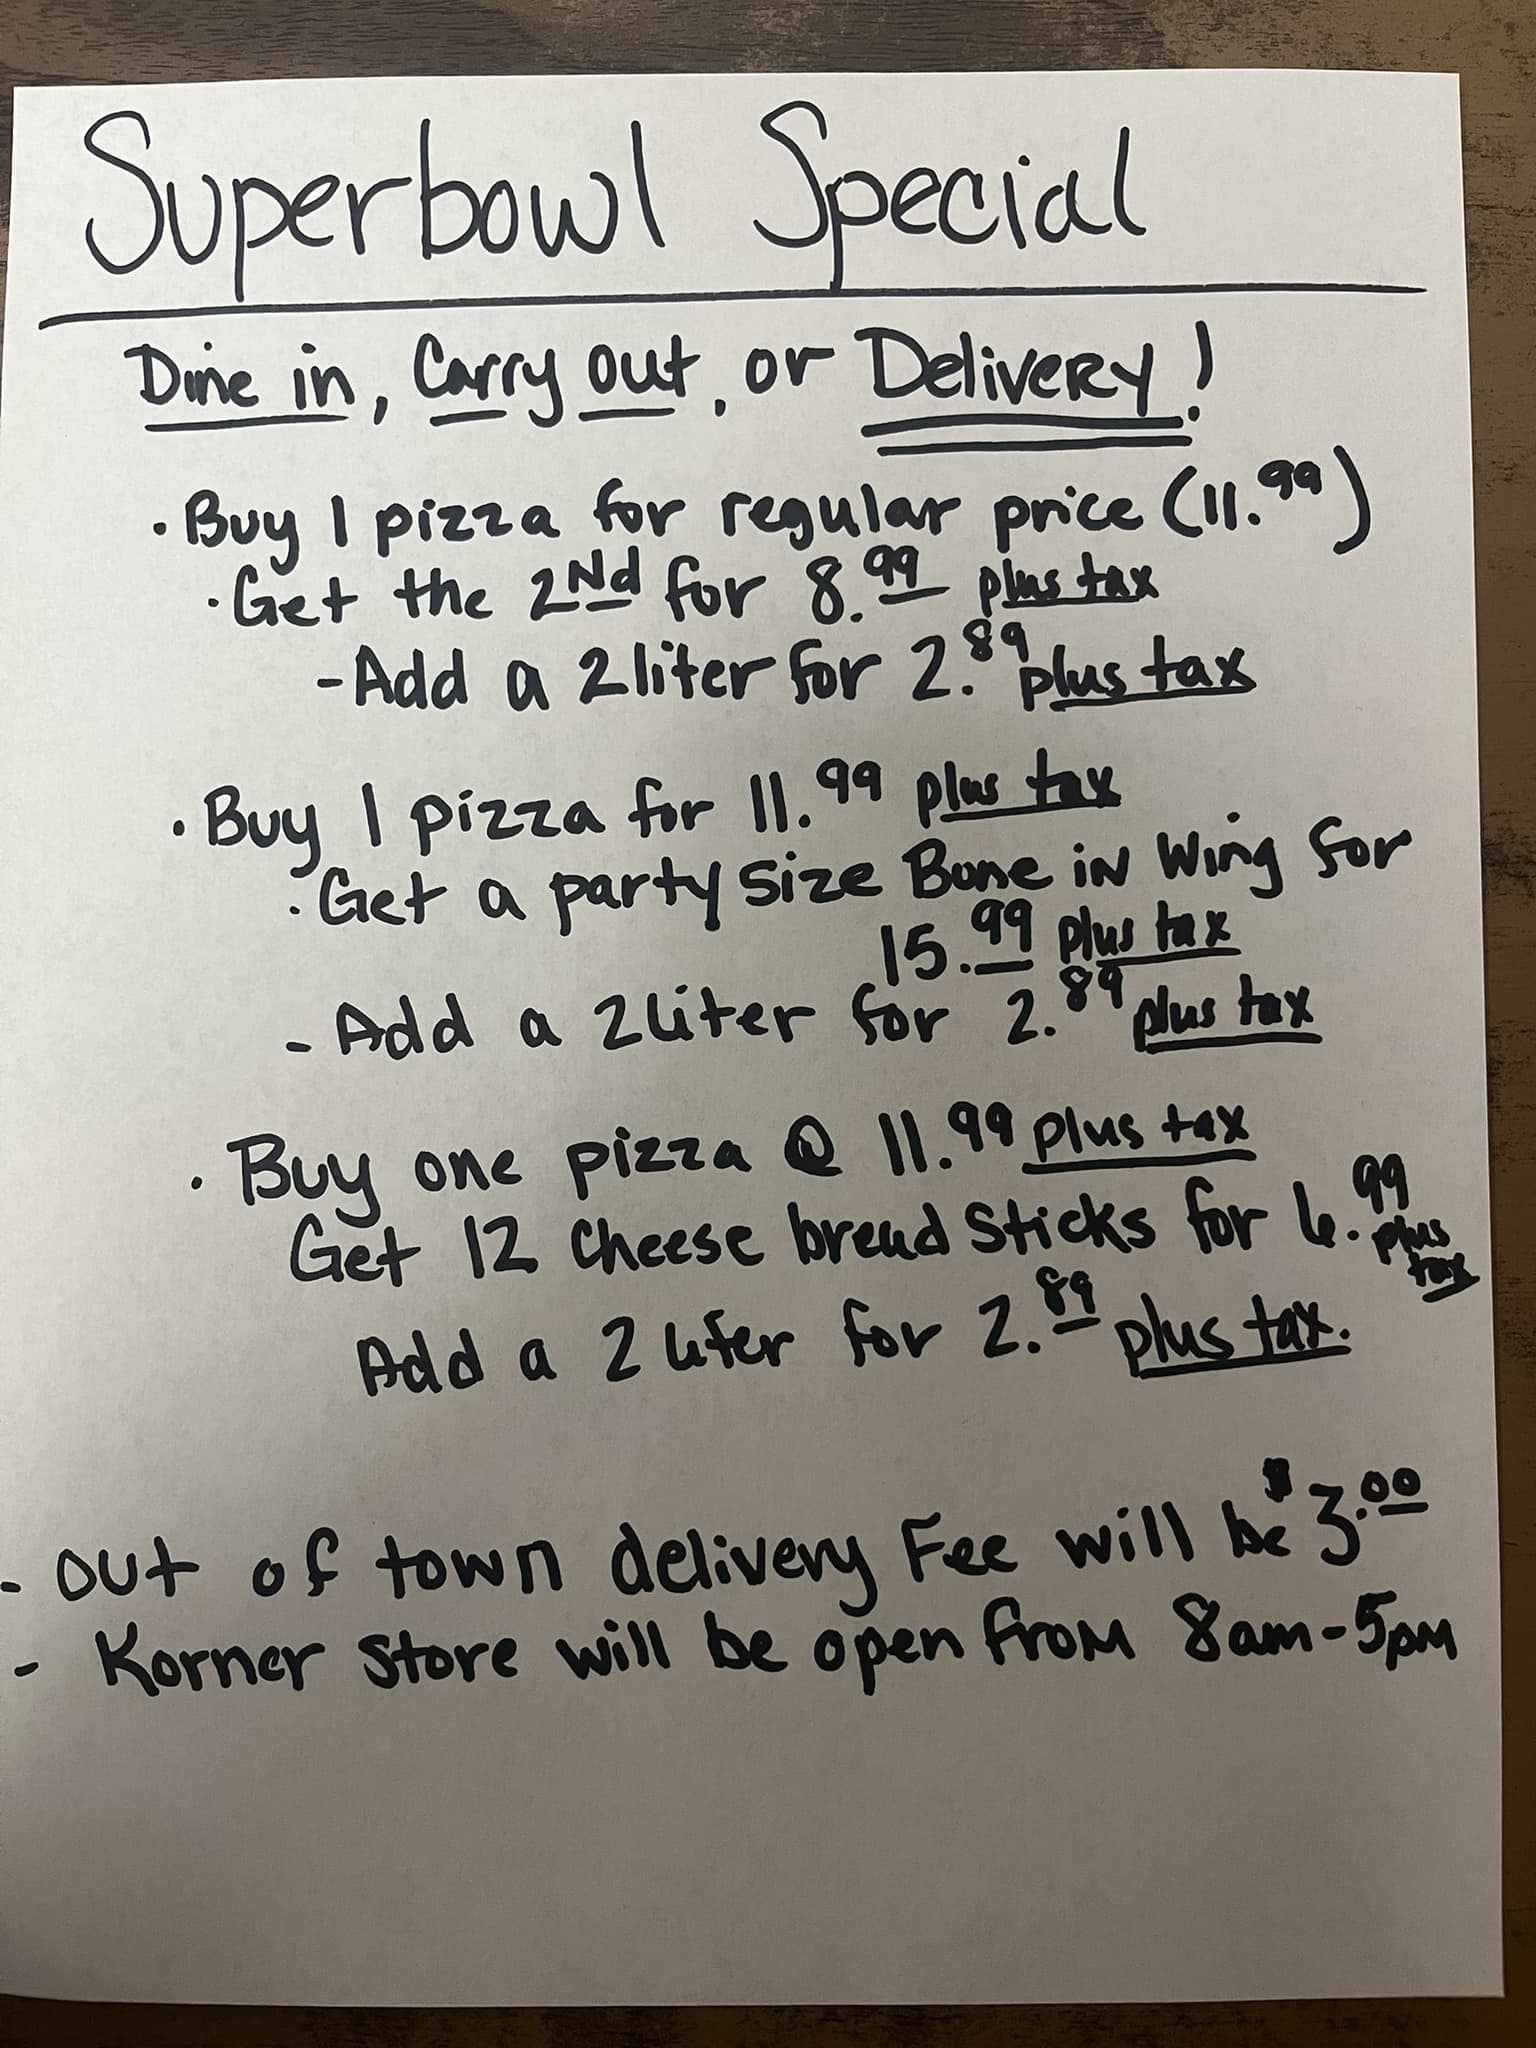 Superbowl Special
Dine in, Carry out, or Delivery!
• Buy 1 pizza for regular price (11.99)
• Get the 2nd for 8.99 plus tax
- Add a 2 liter for 2.89 plus tax
• Buy 1 pizza for 11.99 plus tax
• Get a party size Bone in Wing for
15.99 plus tax
- Add a 2 liter for 2.89 plus tax
• Buy one pizza @ 11.99 plus tax
Get 12 cheese bread sticks for 6.99 plus tax
Add a 2 liter for 2.89 plus tax.
- Out of town delivery Fee will be $3.00
- Korner Store will be open from 8am-5pm